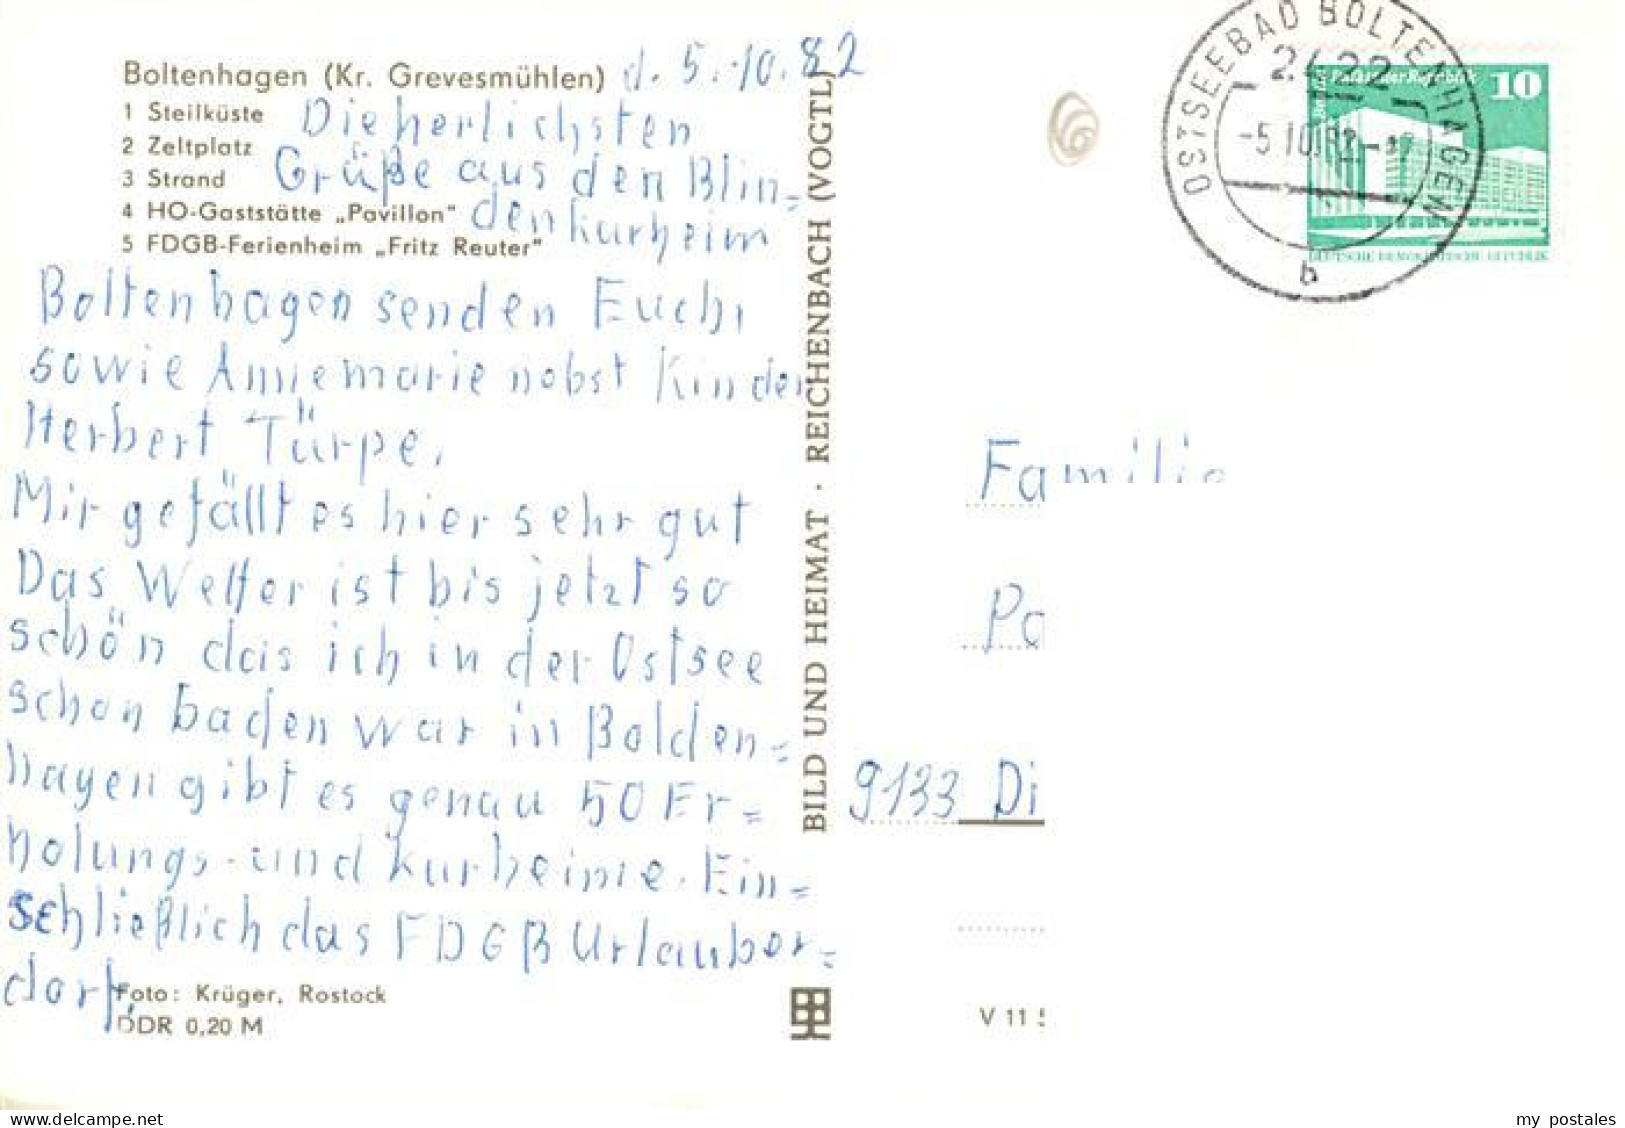 Boltenhagen (Kr. Grevesmühlen) d. 5.-10.82
1 Steilküste
2 Zeltplatz
3 Strand
4 HO-Gaststätte „Pavillon"
5 FDGB-Ferienheim „Fritz Reuter"
Die herlichsten
Grüße aus den Blin=
den kurheim
Boltenhagen senden Euch,
sowie Annemarie nebst Kinder
Herbert Türpe.
Mir gefällt es hier sehr gut
Das Wetter ist bis jetzt so
schön das ich in der Ostsee
schon baden war in Bolden=
hagen gibt es genau 50 Er=
holungs- und kurheime. Ein=
schließlich das FDGB Urlauber=
dorf.
Foto: Krüger, Rostock
DDR 0,20 M
BILD UND HEIMAT · REICHENBACH (VOGTL)
V 11
OSTSEEBAD BOLTENHAGEN
2422
-5.10.82-
b
Palast der Republik
10
DEUTSCHE DEMOKRATISCHE REPUBLIK
Familie
Pa
9133 Di
www.ansichtskartenversand.com
my_postales